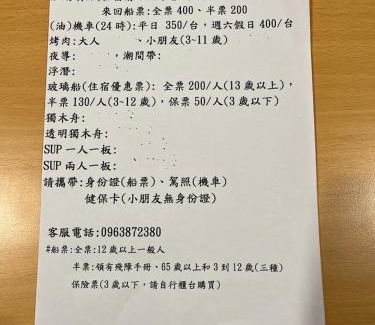 來回船票:全票 400、半票 200
(油)機車(24 時):平日 350/台，週六假日 400/台
烤肉:大人 、小朋友(3~11 歲)
夜導: ，潮間帶:
浮潛:
玻璃船(住宿優惠票): 全票 200/人(13 歲以上)，
半票 130/人(3~12 歲)，保票 50/人(3 歲以下)
獨木舟:
透明獨木舟:
SUP 一人一板:
SUP 兩人一板:
請攜帶:身份證(船票)、駕照(機車)
健保卡(小朋友無身份證)
客服電話:0963872380
#船票:全票:12 歲以上一般人
半票:領有殘障手冊、65 歲以上和 3 到 12 歲(三種)
保險票(3 歲以下，請自行櫃台購買)